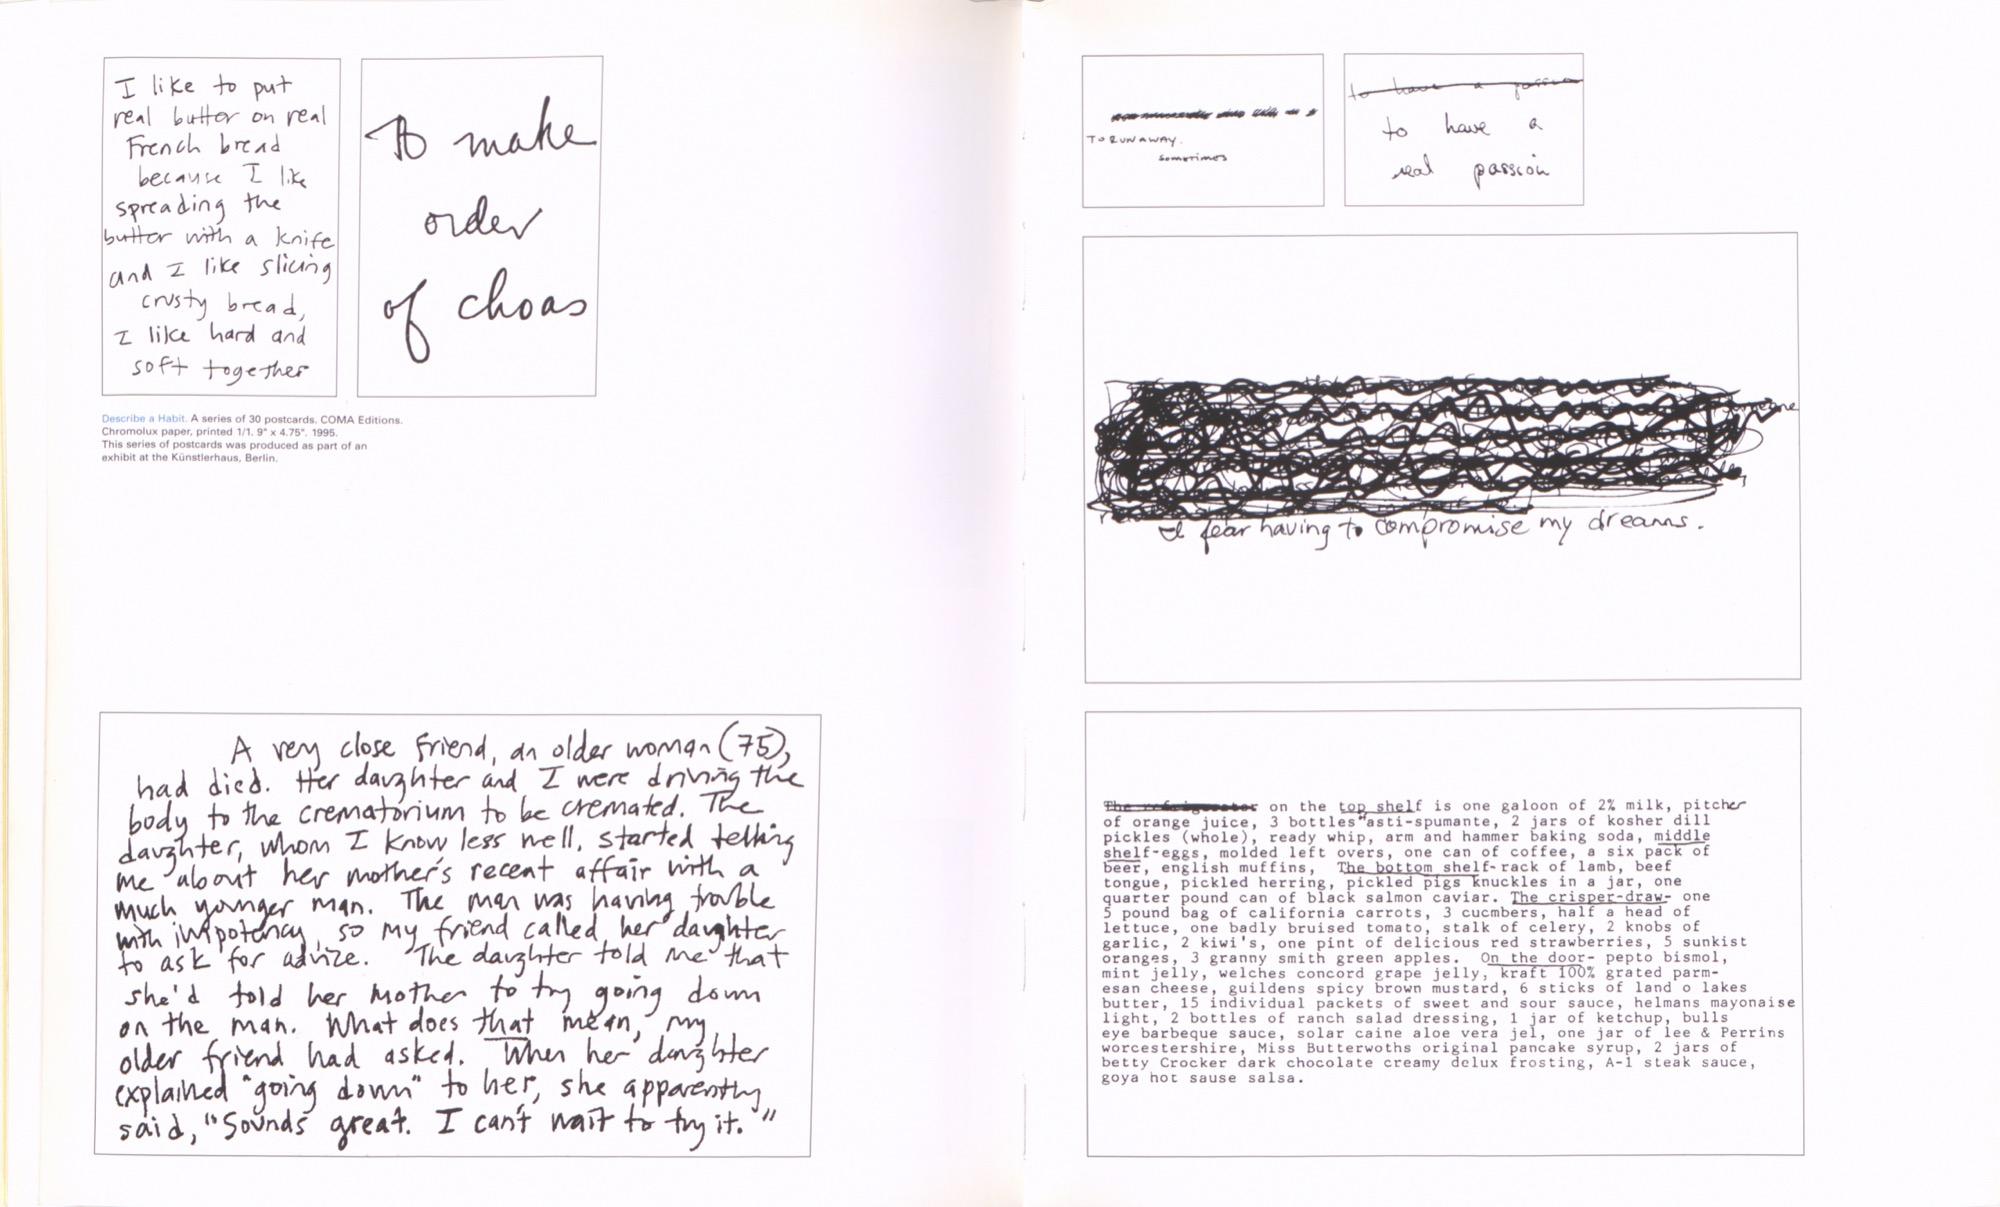 I like to put
real butter on real
French bread
because I like
spreading the
butter with a knife
and I like slicing
crusty bread,
I like hard and
soft together
To make
order
of choas
Describe a Habit. A series of 30 postcards. COMA Editions.
Chromolux paper, printed 1/1. 9" x 4.75". 1995.
This series of postcards was produced as part of an
exhibit at the Künstlerhaus, Berlin.
A very close friend, an older woman (75),
had died. Her daughter and I were driving the
body to the crematorium to be cremated. The
daughter, whom I know less well, started telling
me about her mother's recent affair with a
much younger man. The man was having trouble
with impotency, so my friend called her daughter
to ask for advize. The daughter told me that
she'd told her mother to try going down
on the man. What does that mean, my
older friend had asked. When her daughter
explained "going down" to her, she apparently
said, "Sounds great. I can't wait to try it."
TO RUN AWAY.
sometimes
to have a passion
to have a
real passion
I fear having to compromise my dreams.
The refrigerator on the top shelf is one galoon of 2% milk, pitcher
of orange juice, 3 bottles asti-spumante, 2 jars of kosher dill
pickles (whole), ready whip, arm and hammer baking soda, middle
shelf-eggs, molded left overs, one can of coffee, a six pack of
beer, english muffins, The bottom shelf-rack of lamb, beef
tongue, pickled herring, pickled pigs knuckles in a jar, one
quarter pound can of black salmon caviar. The crisper-draw- one
5 pound bag of california carrots, 3 cucmbers, half a head of
lettuce, one badly bruised tomato, stalk of celery, 2 knobs of
garlic, 2 kiwi's, one pint of delicious red strawberries, 5 sunkist
oranges, 3 granny smith green apples. On the door- pepto bismol,
mint jelly, welches concord grape jelly, kraft 100% grated parm-
esan cheese, guildens spicy brown mustard, 6 sticks of land o lakes
butter, 15 individual packets of sweet and sour sauce, helmans mayonaise
light, 2 bottles of ranch salad dressing, 1 jar of ketchup, bulls
eye barbeque sauce, solar caine aloe vera jel, one jar of lee & Perrins
worcestershire, Miss Butterwoths original pancake syrup, 2 jars of
betty Crocker dark chocolate creamy delux frosting, A-1 steak sauce,
goya hot sause salsa.